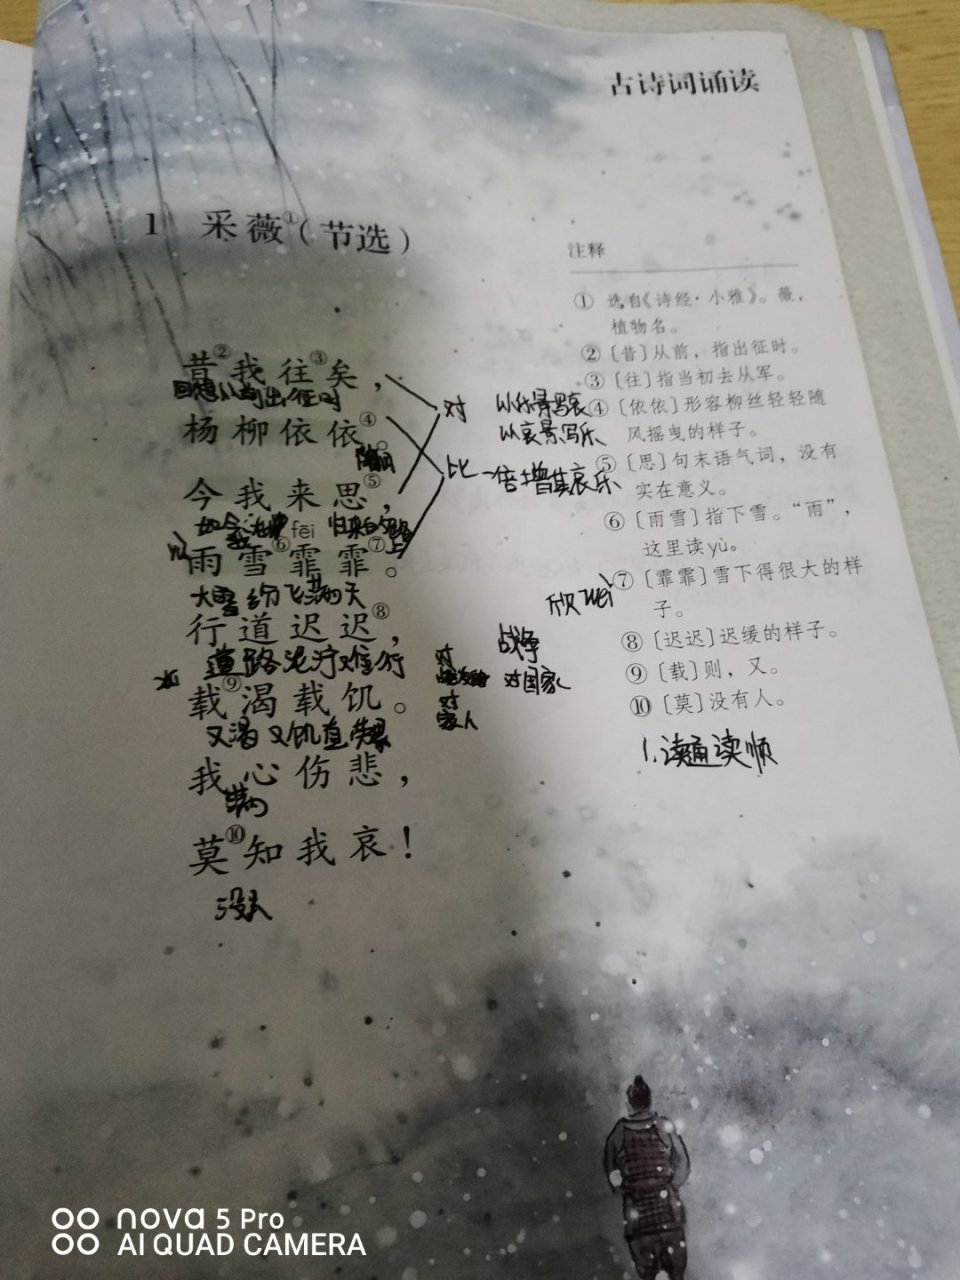 古诗词诵读
1 采薇①(节选)
昔②我往③矣,
回想从前出征时
杨柳依依④。
今我来思⑤,
fēi
雨雪⑥霏霏⑦。
大雪纷飞满天
行道迟迟⑧,
道路泥泞难行
载⑨渴载饥。
又渴又饥直
我心伤悲,
满
莫⑩知我哀!
没人
对
比
以乐景写哀
以哀景写乐
一倍增其哀乐
战争
对
对国家
对
家人
注释
① 选自《诗经·小雅》。薇,
植物名。
②〔昔〕从前,指出征时。
③〔往〕指当初去从军。
④〔依依〕形容柳丝轻轻随
风摇曳的样子。
⑤〔思〕句末语气词,没有
实在意义。
⑥〔雨雪〕指下雪。“雨”,
这里读yù。
⑦〔霏霏〕雪下得很大的样
子。
⑧〔迟迟〕迟缓的样子。
⑨〔载〕则,又。
⑩〔莫〕没有人。
1.读通读顺
nova 5 Pro
AI QUAD CAMERA